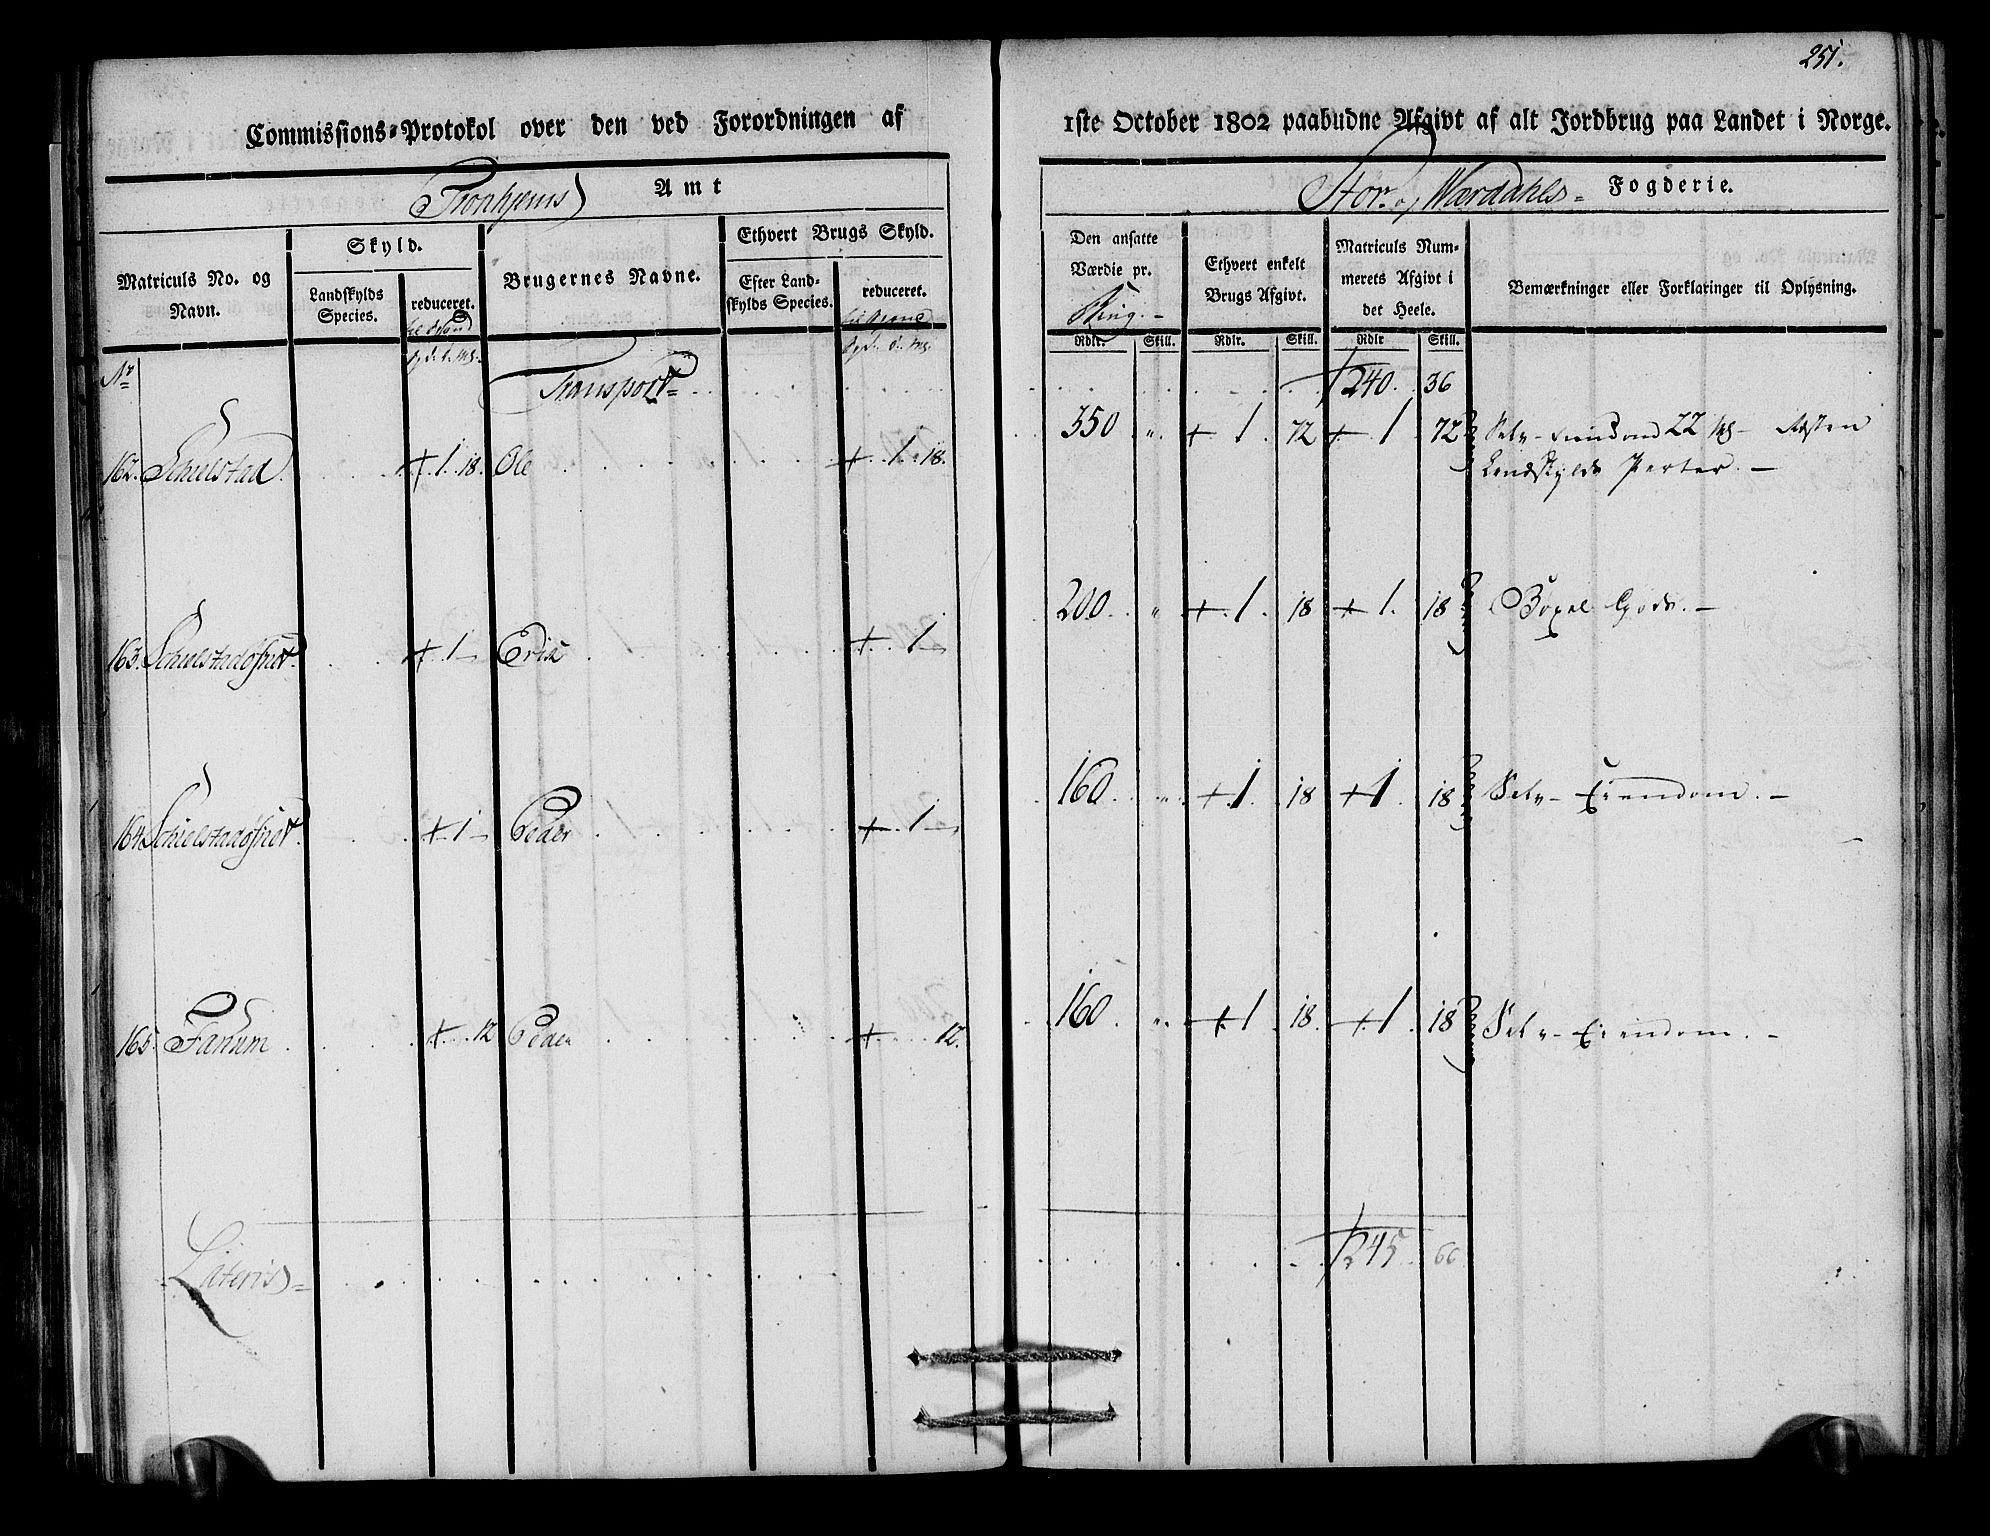 251.
Commissions-Protokol over den ved Forordningen af 1ste October 1802 paabudne Afgivt af alt Jordbrug paa Landet i Norge.
Tronhjems Amt
Stor og Wærdahls- Fogderie.
Matriculs No. og Navn.
Skyld.
Landskylds Species.
reduceret.
Brugernes Navne.
Ethvert Brugs Skyld.
Efter Landskylds Species.
reduceret.
Den ansatte Værdie pr.
Ethvert enkelt Brugs Afgivt.
Matriculs Nummerets Afgivt i det Heele.
Bemærkninger eller Forklaringer til Oplysning.
Rdlr. Skill. Rdlr. Skill. Rdlr Skill.
No
Transport 240. 36
162. Schielstad 1. 18. Ole 1. 18. 350 " 1. 72 1 72 Selv-Eiendom 22
Landskylds Parter. -
163. Schielstadøhret 1 Erik 1 200. " 1. 18 1. 18 Böxel Gods. -
164. Schielstadøhret 1 Peder 1 160. " 1. 18 1. 18 Selv-Eiendom. -
165. Fanum 12 Peder 12. 160 " 1 18. 1. 18 Selv-Eiendom. -
Lateris 245. 66